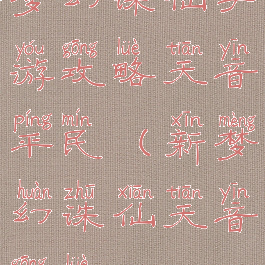 梦幻诛仙手
yóu gōng lüè tiān yīn
游攻略天音
píng mín xīn mèng
平民(新梦
huàn zhū xiān tiān yīn
幻诛仙天音
gōng lüè